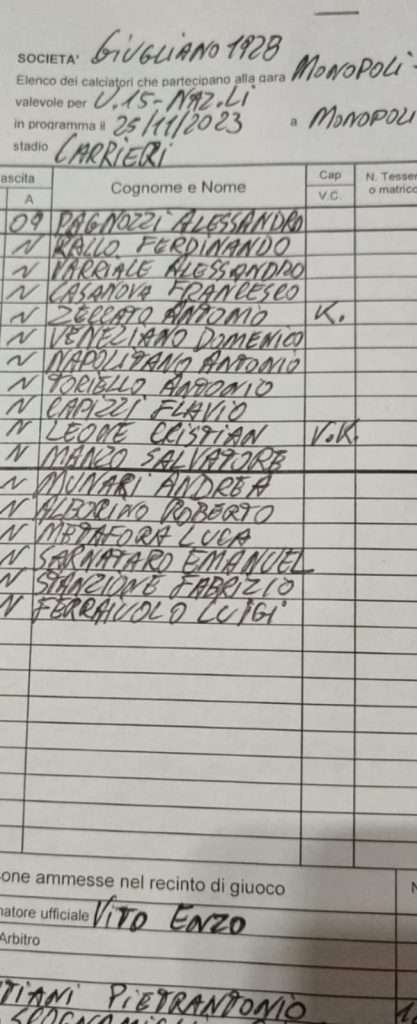 SOCIETA' GIUGLIANO 1928
Elenco dei calciatori che partecipano alla gara MONOPOLI -
valevole per U.15 - NAZ.LI
in programma il 25/11/2023 a MONOPOLI
stadio CARRIERI
ascita Cap N. Tesser
A Cognome e Nome V.C. o matrico
09 PAGNOZZI ALESSANDRO
N RALLO FERDINANDO
N VARRIALE ALESSANDRO
N CASANOVA FRANCESCO
N ZECCATO ANTONIO K.
N VENEZIANO DOMENICO
N NAPOLITANO ANTONIO
N TORIELLO ANTONIO
N CAPIZZI FLAVIO
N LEONE CRISTIAN V.K.
N MANZO SALVATORE
N MUNARI ANDREA
N ALBORINO ROBERTO
N METAFORA LUCA
N SARNATARO EMANUEL
N STANZIONE FABRIZIO
N FERRAIUOLO LUIGI
one ammesse nel recinto di giuoco N
natore ufficiale VITO ENZO
Arbitro
TIANI PIETRANTONIO